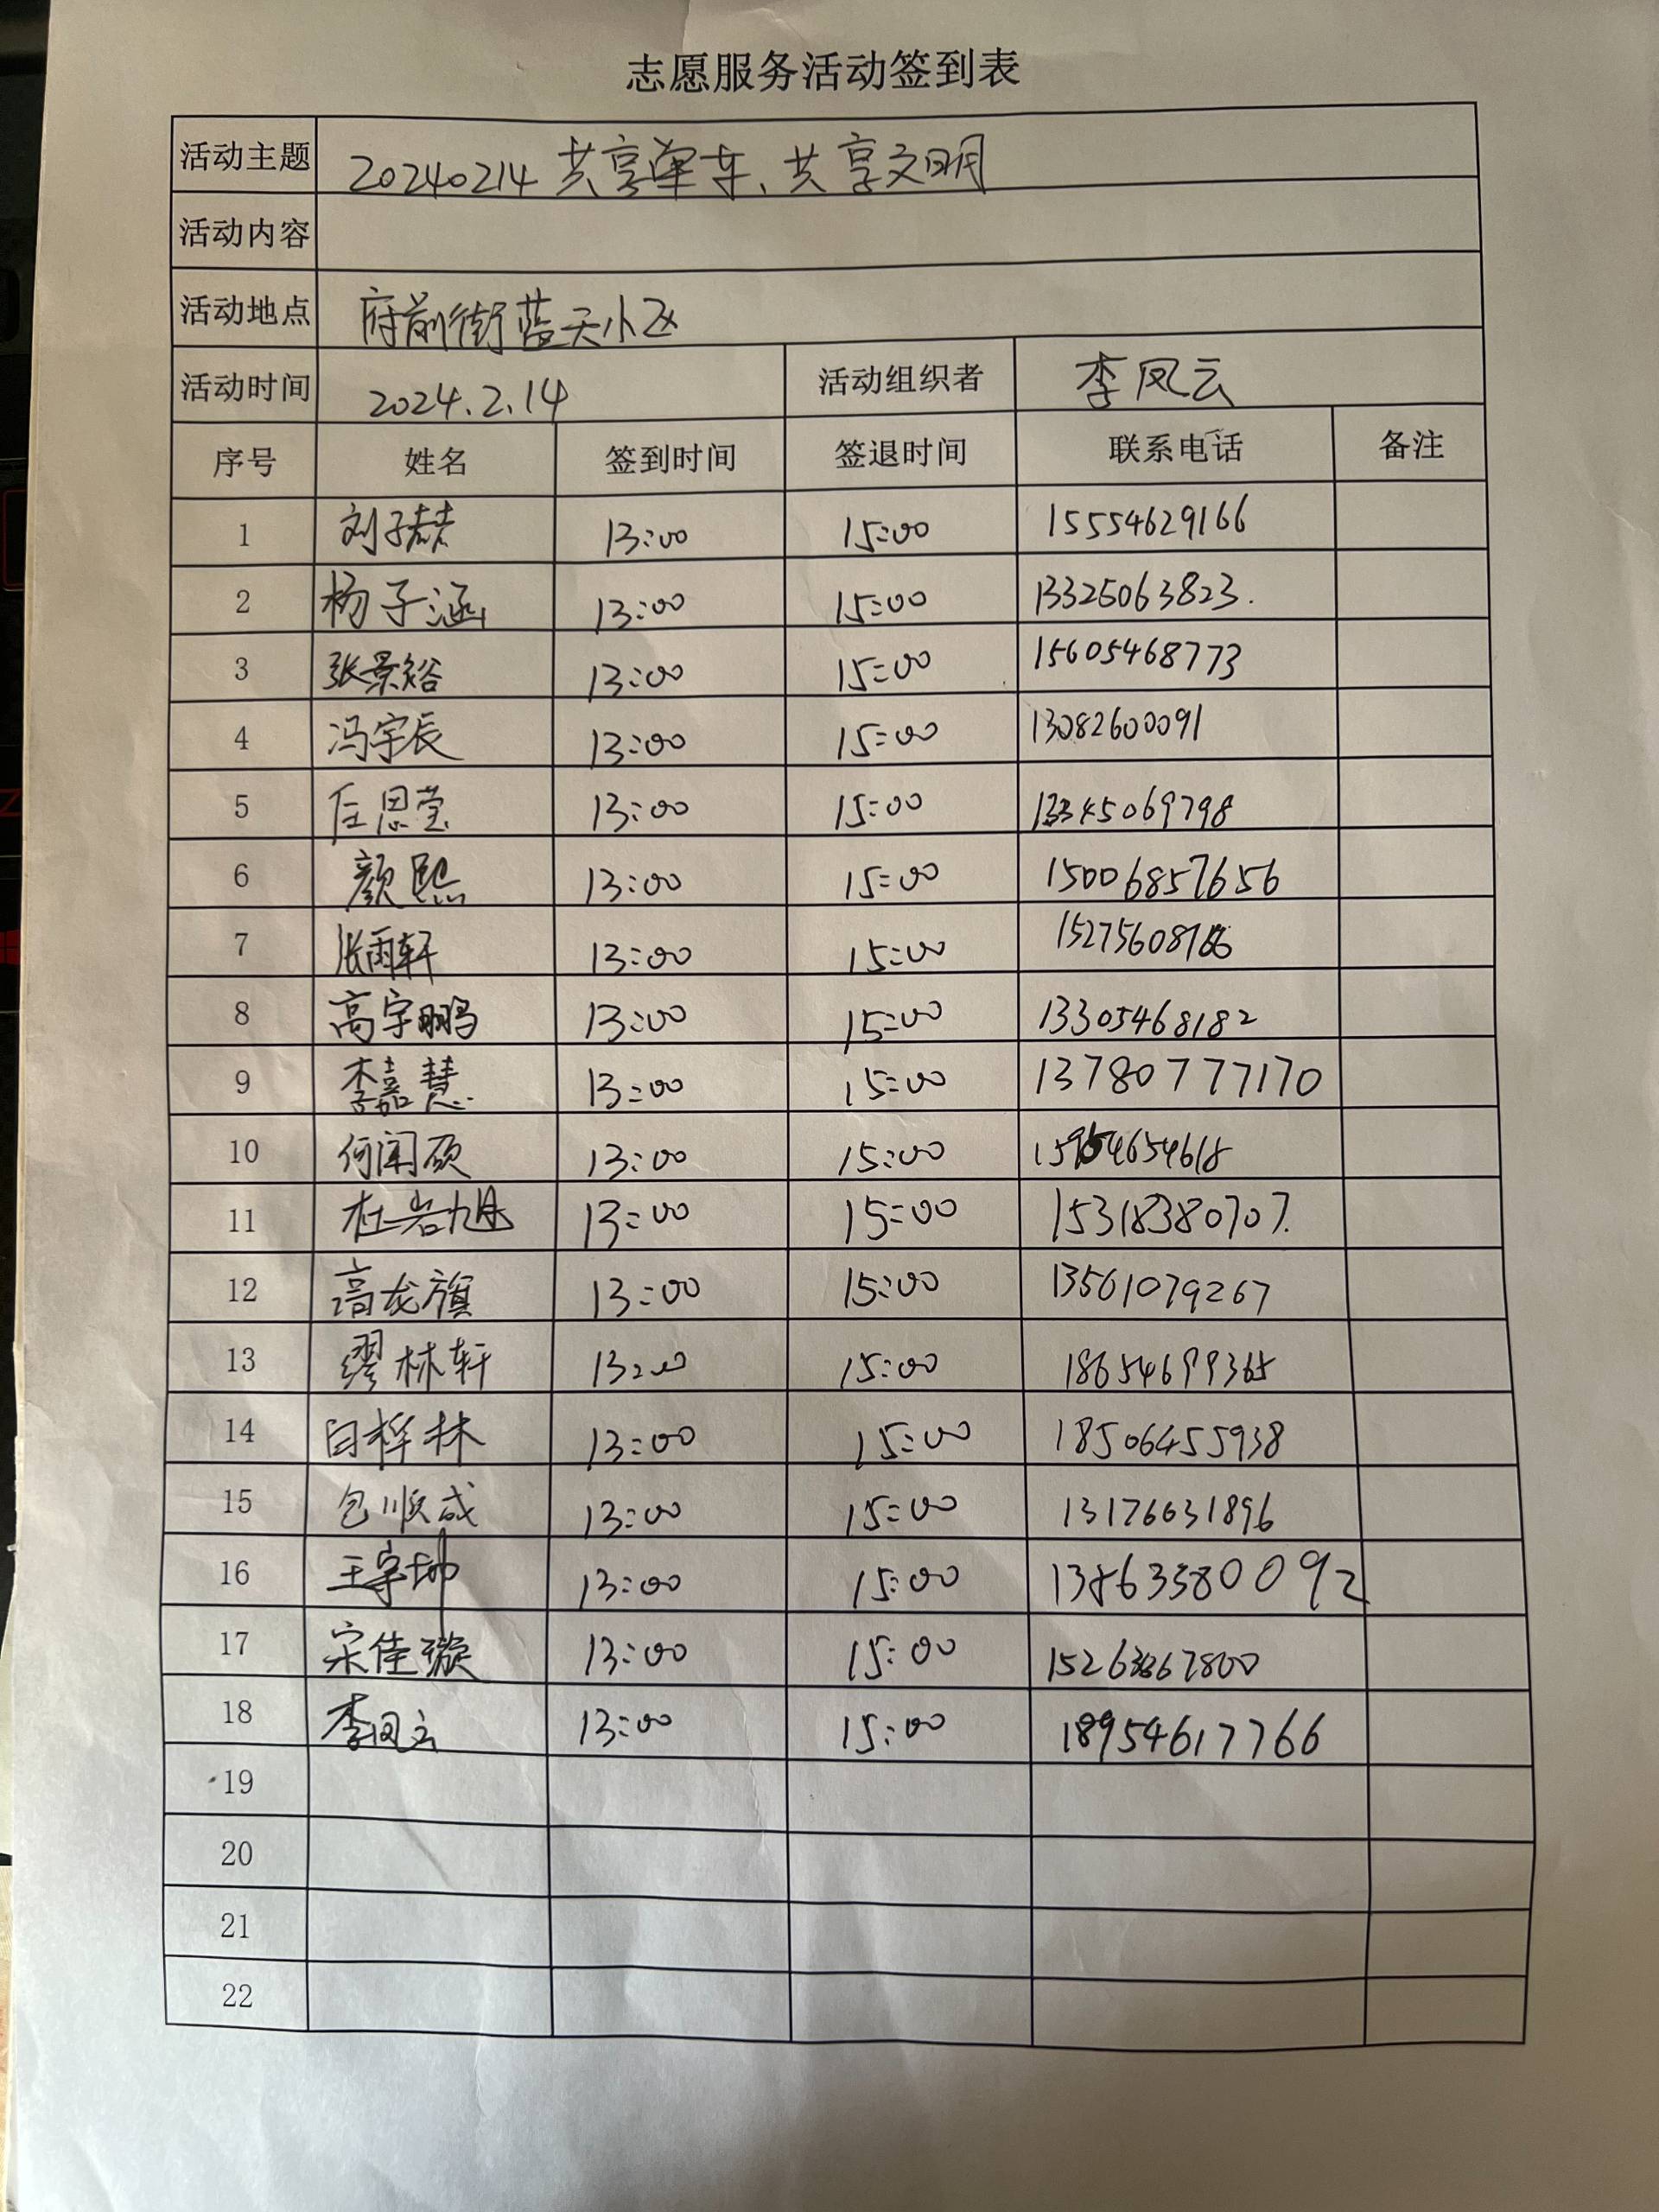 志愿服务活动签到表
活动主题 20240214 共享单车、共享文明
活动内容
活动地点 府前街蓝天小区
活动时间 2024.2.14 活动组织者 李凤云
序号 姓名 签到时间 签退时间 联系电话 备注
1 刘子喆 13:00 15:00 15554629166
2 杨子涵 13:00 15:00 13325063823.
3 张景裕 13:00 15:00 15605468773
4 冯宇辰 13:00 15:00 13082600091
5 任思莹 13:00 15:00 13345069798
6 颜熙 13:00 15:00 15006857656
7 张雨轩 13:00 15:00
8 高宇鹏 13:00 15:00 13305468182
9 李嘉慧 13:00 15:00 13780777170
10 何闻硕 13:00 15:00
11 杜岩旭 13:00 15:00 15318380707.
12 高龙旗 13:00 15:00 13561079267
13 缪林轩 13:00 15:00 18654699365
14 白桦林 13:00 15:00 18506455938
15 包顺成 13:00 15:00 13176631896
16 王宇坤 13:00 15:00 13863580092
17 宋佳璇 13:00 15:00
18 李凤云 13:00 15:00 18954617766
19
20
21
22